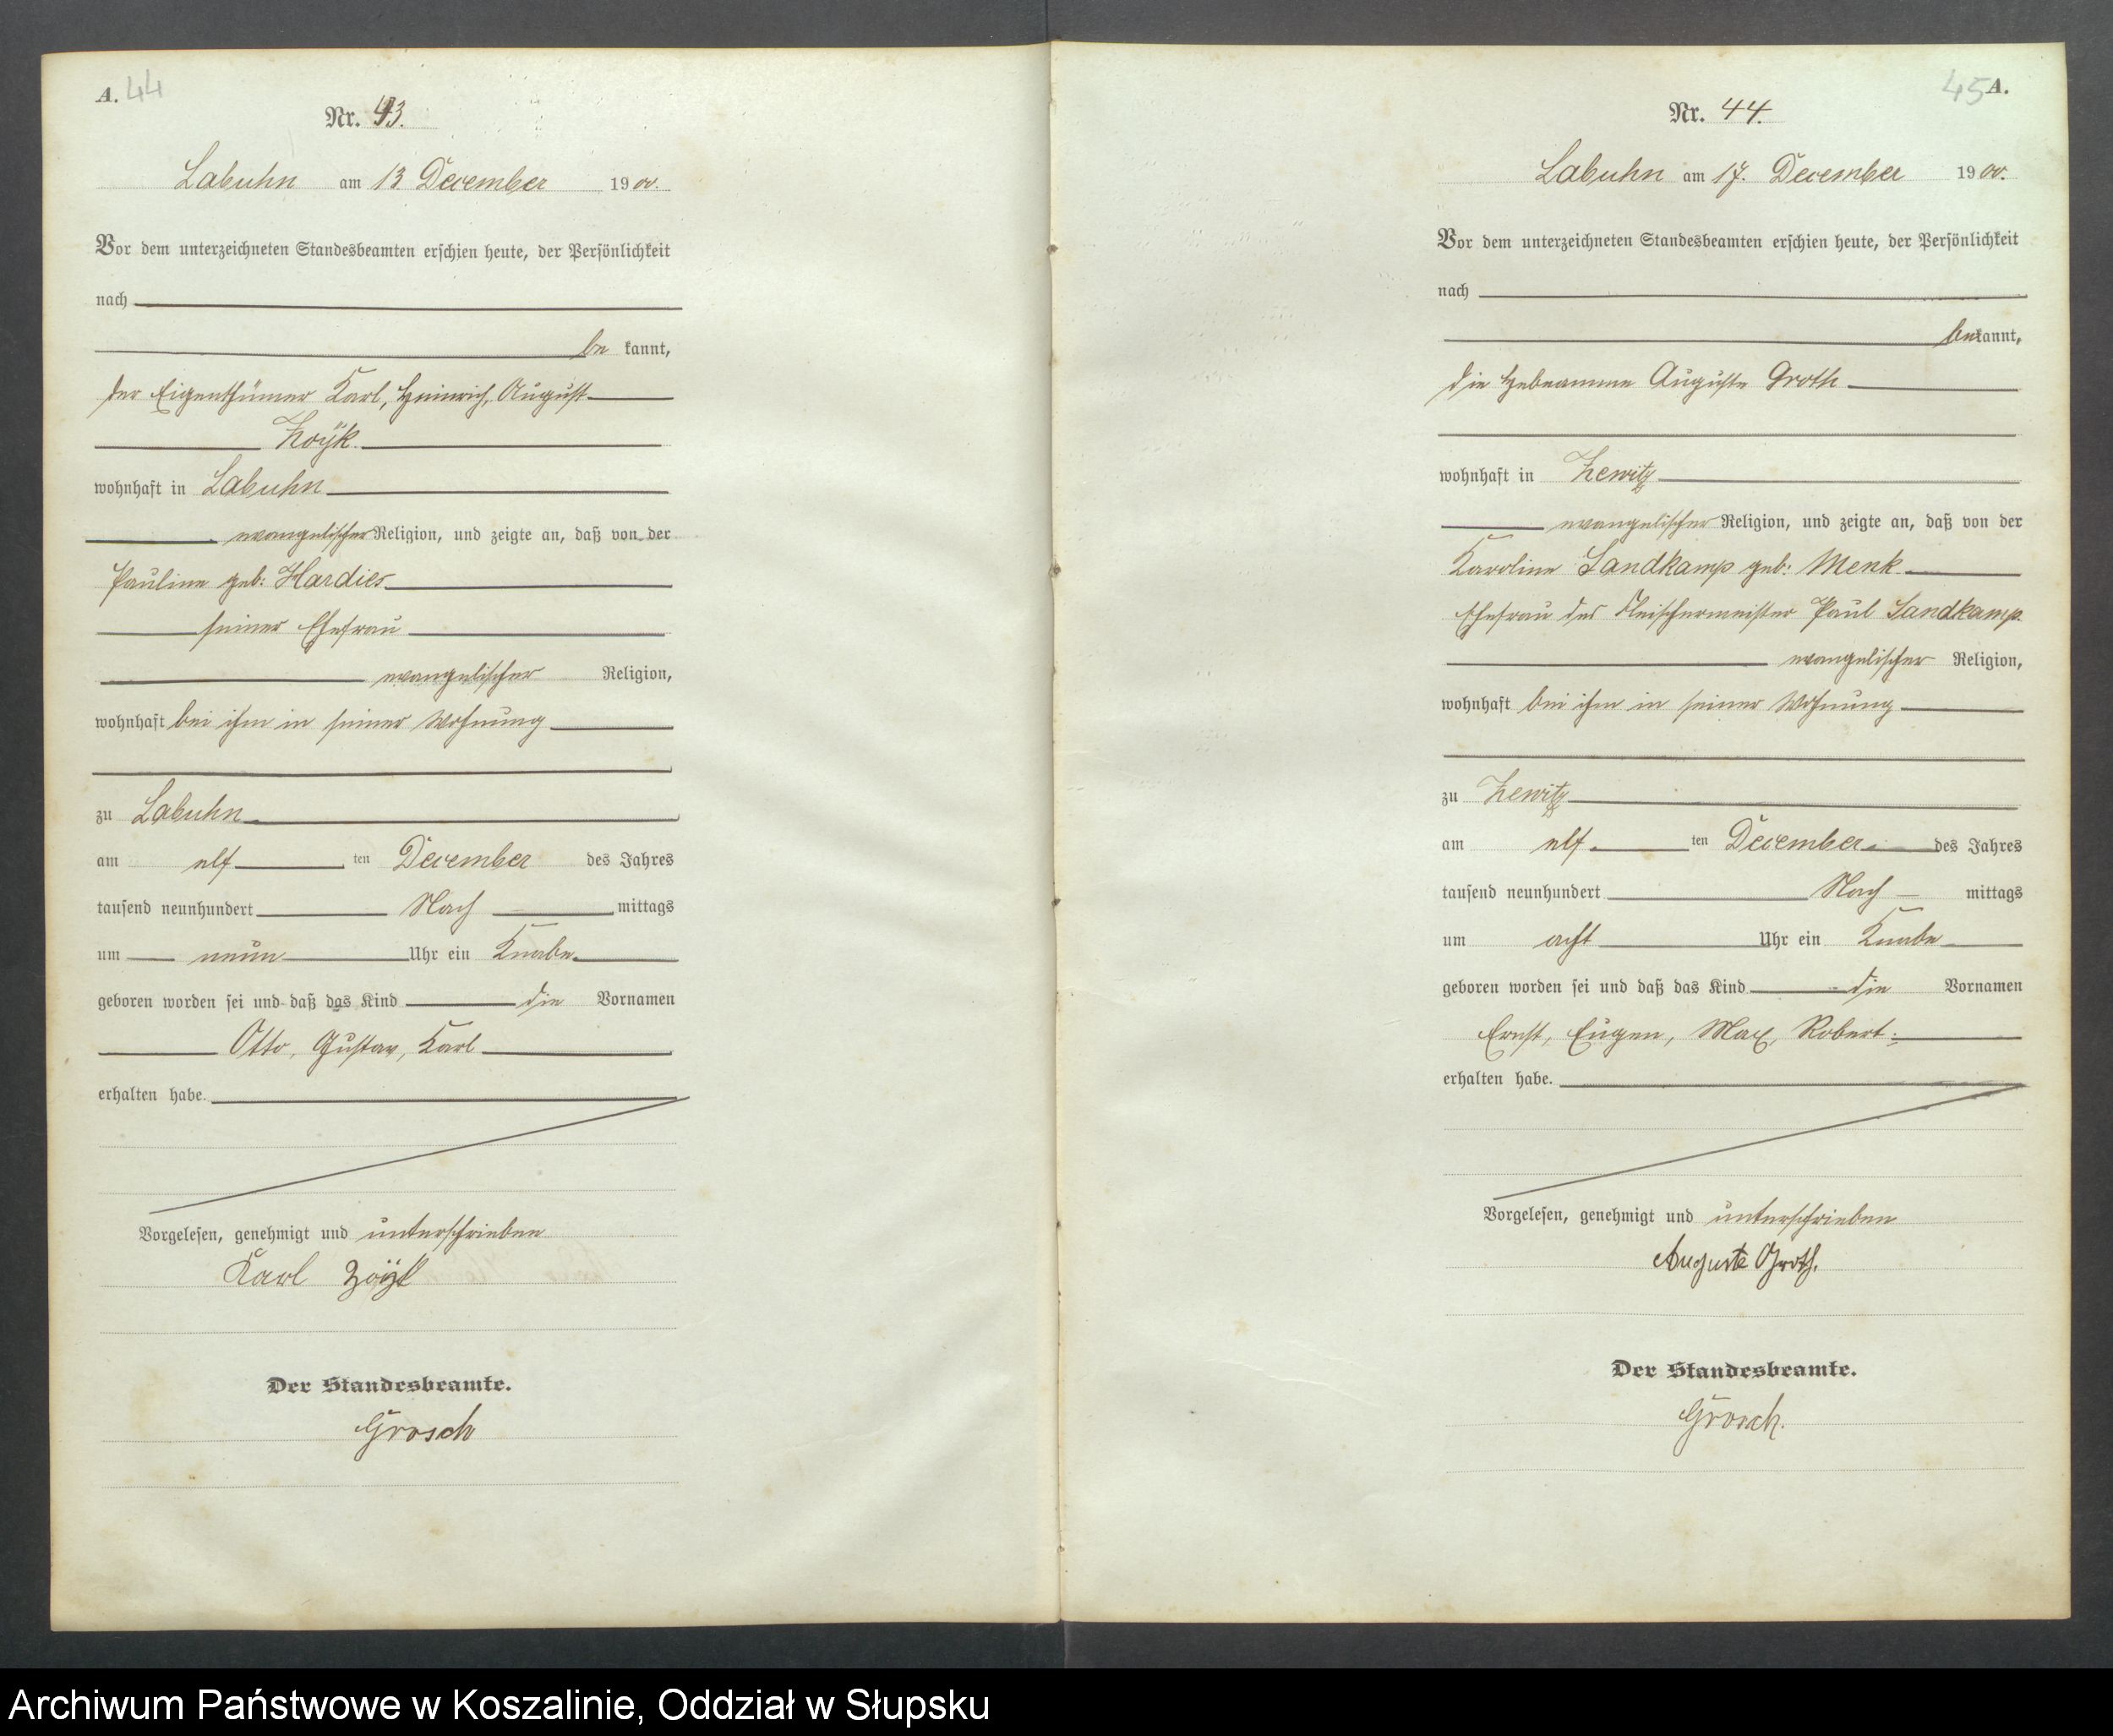 A. 44
Nr. 43.
Labuhn am 13 December 1900.
Vor dem unterzeichneten Standesbeamten erschien heute, der Persönlichkeit
nach
be kannt,
der Eigenthümer Karl, Heinrich, August
Zoÿk.
wohnhaft in Labuhn
evangelischer Religion, und zeigte an, daß von der
Pauline geb: Hardies
seiner Ehefrau
evangelischer Religion,
wohnhaft bei ihm in seiner Wohnung
zu Labuhn
am elf ten December des Jahres
tausend neunhundert Nach mittags
um neun Uhr ein Knabe
geboren worden sei und daß das Kind die Vornamen
Otto, Gustav, Karl
erhalten habe.
Vorgelesen, genehmigt und unterschrieben
Karl Zoÿk
Der Standesbeamte.
Grosch
45 A.
Nr. 44.
Labuhn am 17. December 1900.
Vor dem unterzeichneten Standesbeamten erschien heute, der Persönlichkeit
nach
bekannt,
die Hebeamme Auguste Groth
wohnhaft in Zewitz
evangelischer Religion, und zeigte an, daß von der
Karoline Sandkamp geb: Menk
Ehefrau des Fleischermeister Paul Sandkamp.
evangelischer Religion,
wohnhaft bei ihm in seiner Wohnung
zu Zewitz
am elf ten December des Jahres
tausend neunhundert Nach mittags
um acht Uhr ein Knabe
geboren worden sei und daß das Kind die Vornamen
Ernst, Eugen, Max, Robert.
erhalten habe.
Vorgelesen, genehmigt und unterschrieben
Auguste Groth.
Der Standesbeamte.
Grosch.
Archiwum Państwowe w Koszalinie, Oddział w Słupsku